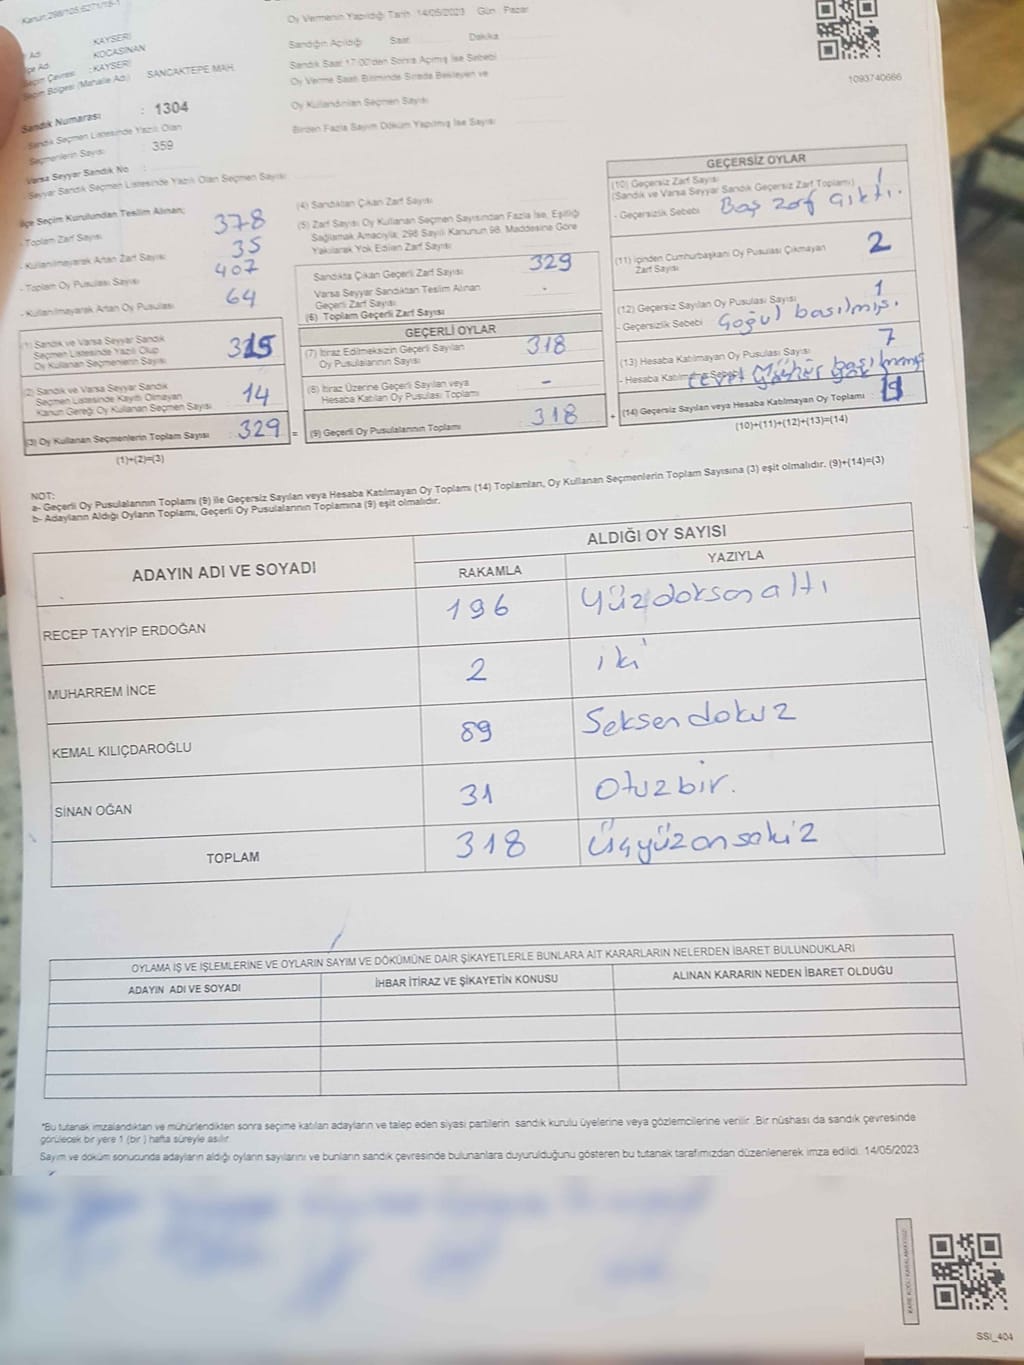 Kanun:298/105;6271/16-1
Adı KAYSERİ
İlçe Adı KOCASİNAN
Seçim Çevresi : KAYSERİ
Seçim Bölgesi (Mahalle Adı) SANCAKTEPE MAH.
Sandık Numarası : 1304
Sandık Seçmen Listesinde Yazılı Olan
Seçmenlerin Sayısı : 359
Varsa Seyyar Sandık No
Seyyar Sandık Seçmen Listesinde Yazılı Olan Seçmen Sayısı
Oy Vermenin Yapıldığı Tarih 14/05/2023 Gün Pazar
Sandığın Açıldığı Saat Dakika
Sandık Saat 17:00'den Sonra Açımış İse Sebebi
Oy Verme Saati Bitiminde Sırada Bekleyen ve
Oy Kullandırılan Seçmen Sayısı
Birden Fazla Sayım Döküm Yapılmış İse Sayısı
1093740666
İlçe Seçim Kurulundan Teslim Alınan;
- Toplam Zarf Sayısı 378
- Kullanılmayarak Artan Zarf Sayısı 35
- Toplam Oy Pusulası Sayısı 407
- Kullanılmayarak Artan Oy Pusulası 64
(1) Sandık ve Varsa Seyyar Sandık
Seçmen Listesinde Yazılı Olup
Oy Kullanan Seçmenlerin Sayısı 315
(2) Sandık ve Varsa Seyyar Sandık
Seçmen Listesinde Kayıtlı Olmayan
Kanun Gereği Oy Kullanan Seçmen Sayısı 14
(3) Oy Kullanan Seçmenlerin Toplam Sayısı : 329 =
(1)+(2)=(3)
(4) Sandıktan Çıkan Zarf Sayısı
(5) Zarf Sayısı Oy Kullanan Seçmen Sayısından Fazla İse, Eşitliği
Sağlamak Amacıyla, 298 Sayılı Kanunun 98. Maddesine Göre
Yakılarak Yok Edilen Zarf Sayısı
Sandıkta Çıkan Geçerli Zarf Sayısı 329
Varsa Seyyar Sandıktan Teslim Alınan
Geçerli Zarf Sayısı -
(6) Toplam Geçerli Zarf Sayısı
GEÇERLİ OYLAR
(7) İtiraz Edilmeksizin Geçerli Sayılan
Oy Pusulalarının Sayısı 318
(8) İtiraz Üzerine Geçerli Sayılan veya
Hesaba Katılan Oy Pusulası Toplamı -
(9) Geçerli Oy Pusulalarının Toplamı 318 +
GEÇERSİZ OYLAR
(10) Geçersiz Zarf Sayısı 1
(Sandık ve Varsa Seyyar Sandık Geçersiz Zarf Toplamı)
- Geçersizlik Sebebi Boş zarf çıktı.
(11) İçinden Cumhurbaşkanı Oy Pusulası Çıkmayan
Zarf Sayısı 2
(12) Geçersiz Sayılan Oy Pusulası Sayısı 1
- Geçersizlik Sebebi Çoğul basılmış.
(13) Hesaba Katılmayan Oy Pusulası Sayısı 7
- Hesaba Katılmama Sebebi Evet Mühür basılmamış
(14) Geçersiz Sayılan veya Hesaba Katılmayan Oy Toplamı :
(10)+(11)+(12)+(13)=(14)
NOT:
a- Geçerli Oy Pusulalarının Toplamı (9) ile Geçersiz Sayılan veya Hesaba Katılmayan Oy Toplamı (14) Toplamları, Oy Kullanan Seçmenlerin Toplam Sayısına (3) eşit olmalıdır. (9)+(14)=(3)
b- Adayların Aldığı Oyların Toplamı, Geçerli Oy Pusulalarının Toplamına (9) eşit olmalıdır.
ADAYIN ADI VE SOYADI
ALDIĞI OY SAYISI
RAKAMLA YAZIYLA
RECEP TAYYİP ERDOĞAN 196 Yüzdoksan altı
MUHARREM İNCE 2 iki
KEMAL KILIÇDAROĞLU 89 Seksen dokuz
SİNAN OĞAN 31 Otuzbir.
TOPLAM 318 Üçyüzonsekiz
OYLAMA İŞ VE İŞLEMLERİNE VE OYLARIN SAYIM VE DÖKÜMÜNE DAİR ŞİKAYETLERLE BUNLARA AİT KARARLARIN NELERDEN İBARET BULUNDUKLARI
ADAYIN ADI VE SOYADI İHBAR İTİRAZ VE ŞİKAYETİN KONUSU ALINAN KARARIN NEDEN İBARET OLDUĞU
*Bu tutanak imzalandıktan ve mühürlendikten sonra seçime katılan adayların ve talep eden siyasi partilerin sandık kurulu üyelerine veya gözlemcilerine verilir .Bir nüshası da sandık çevresinde
görülecek bir yere 1 (bir ) hafta süreyle asılır
Sayım ve döküm sonucunda adayların aldığı oyların sayılarını ve bunların sandık çevresinde bulunanlara duyurulduğunu gösteren bu tutanak tarafımızdan düzenlenerek imza edildi. 14/05/2023
KARE KODU KARALAMAYINIZ
SSI_404